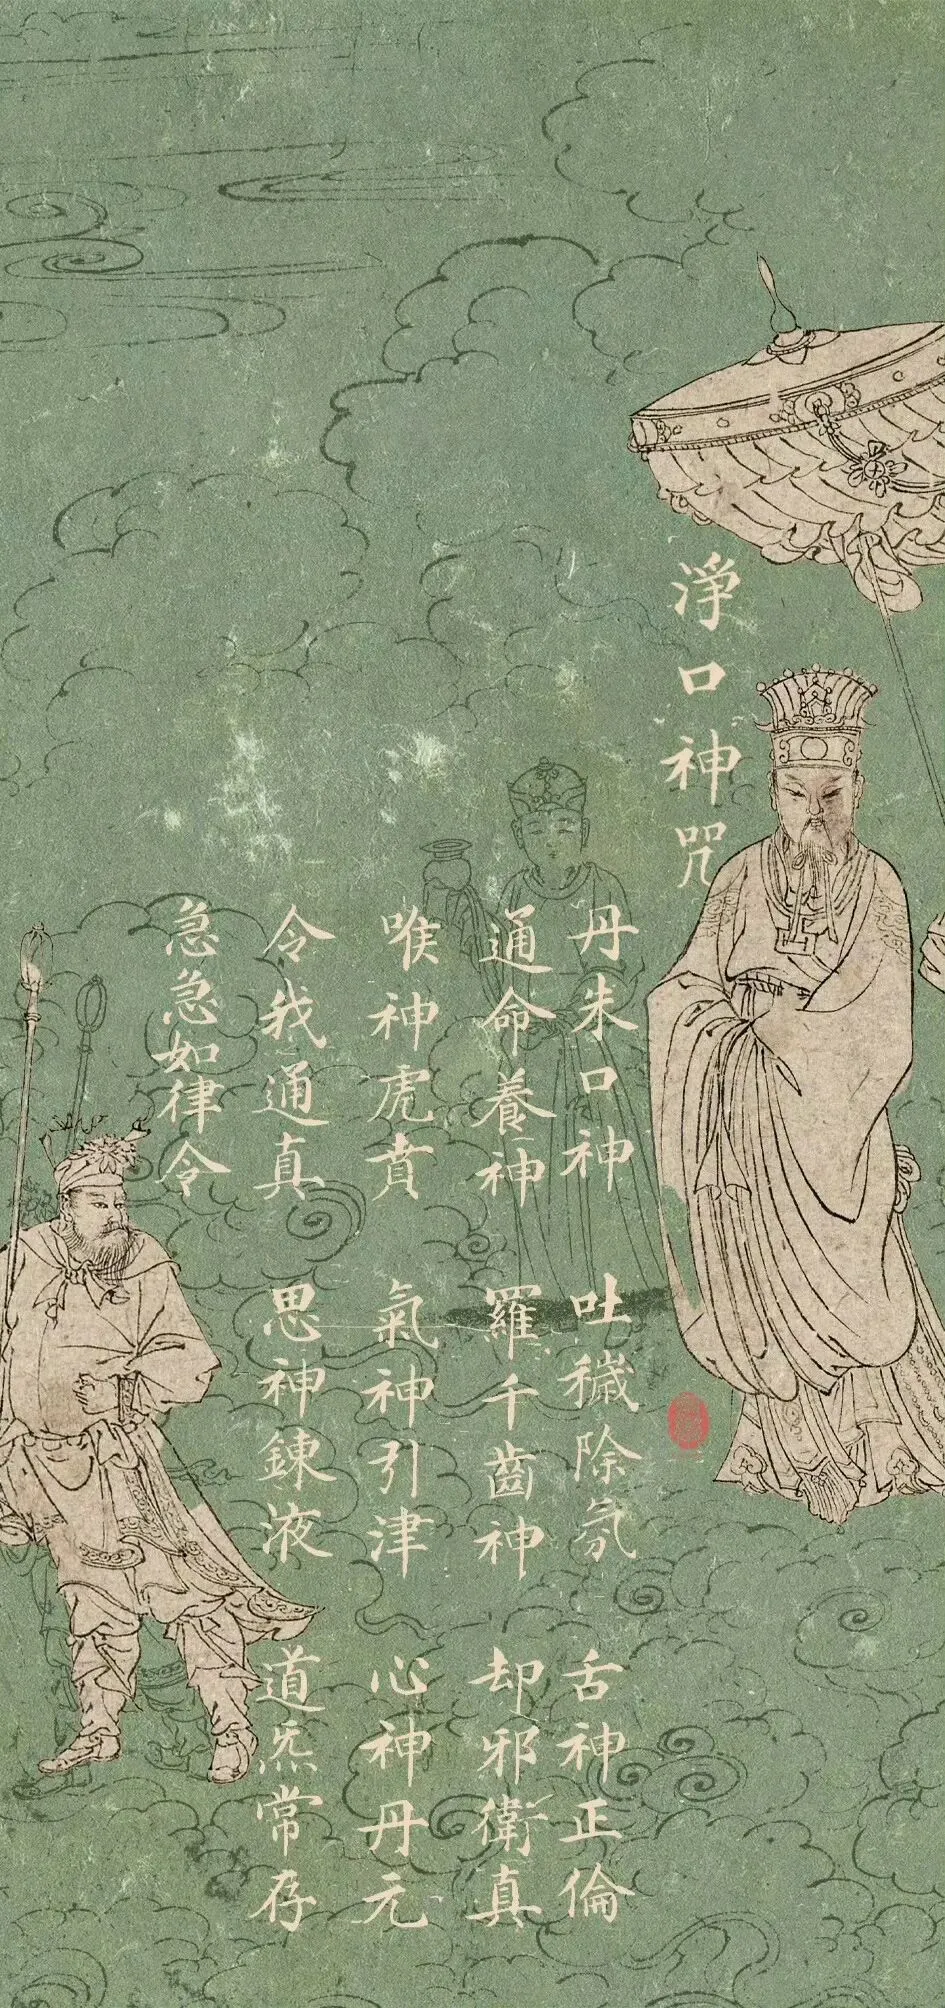 淨口神咒
丹朱口神 吐穢除氛 舌神正倫
通命養神 羅千齒神 却邪衛真
喉神虎賁 氣神引津 心神丹元
令我通真 思神鍊液 道炁常存
急急如律令